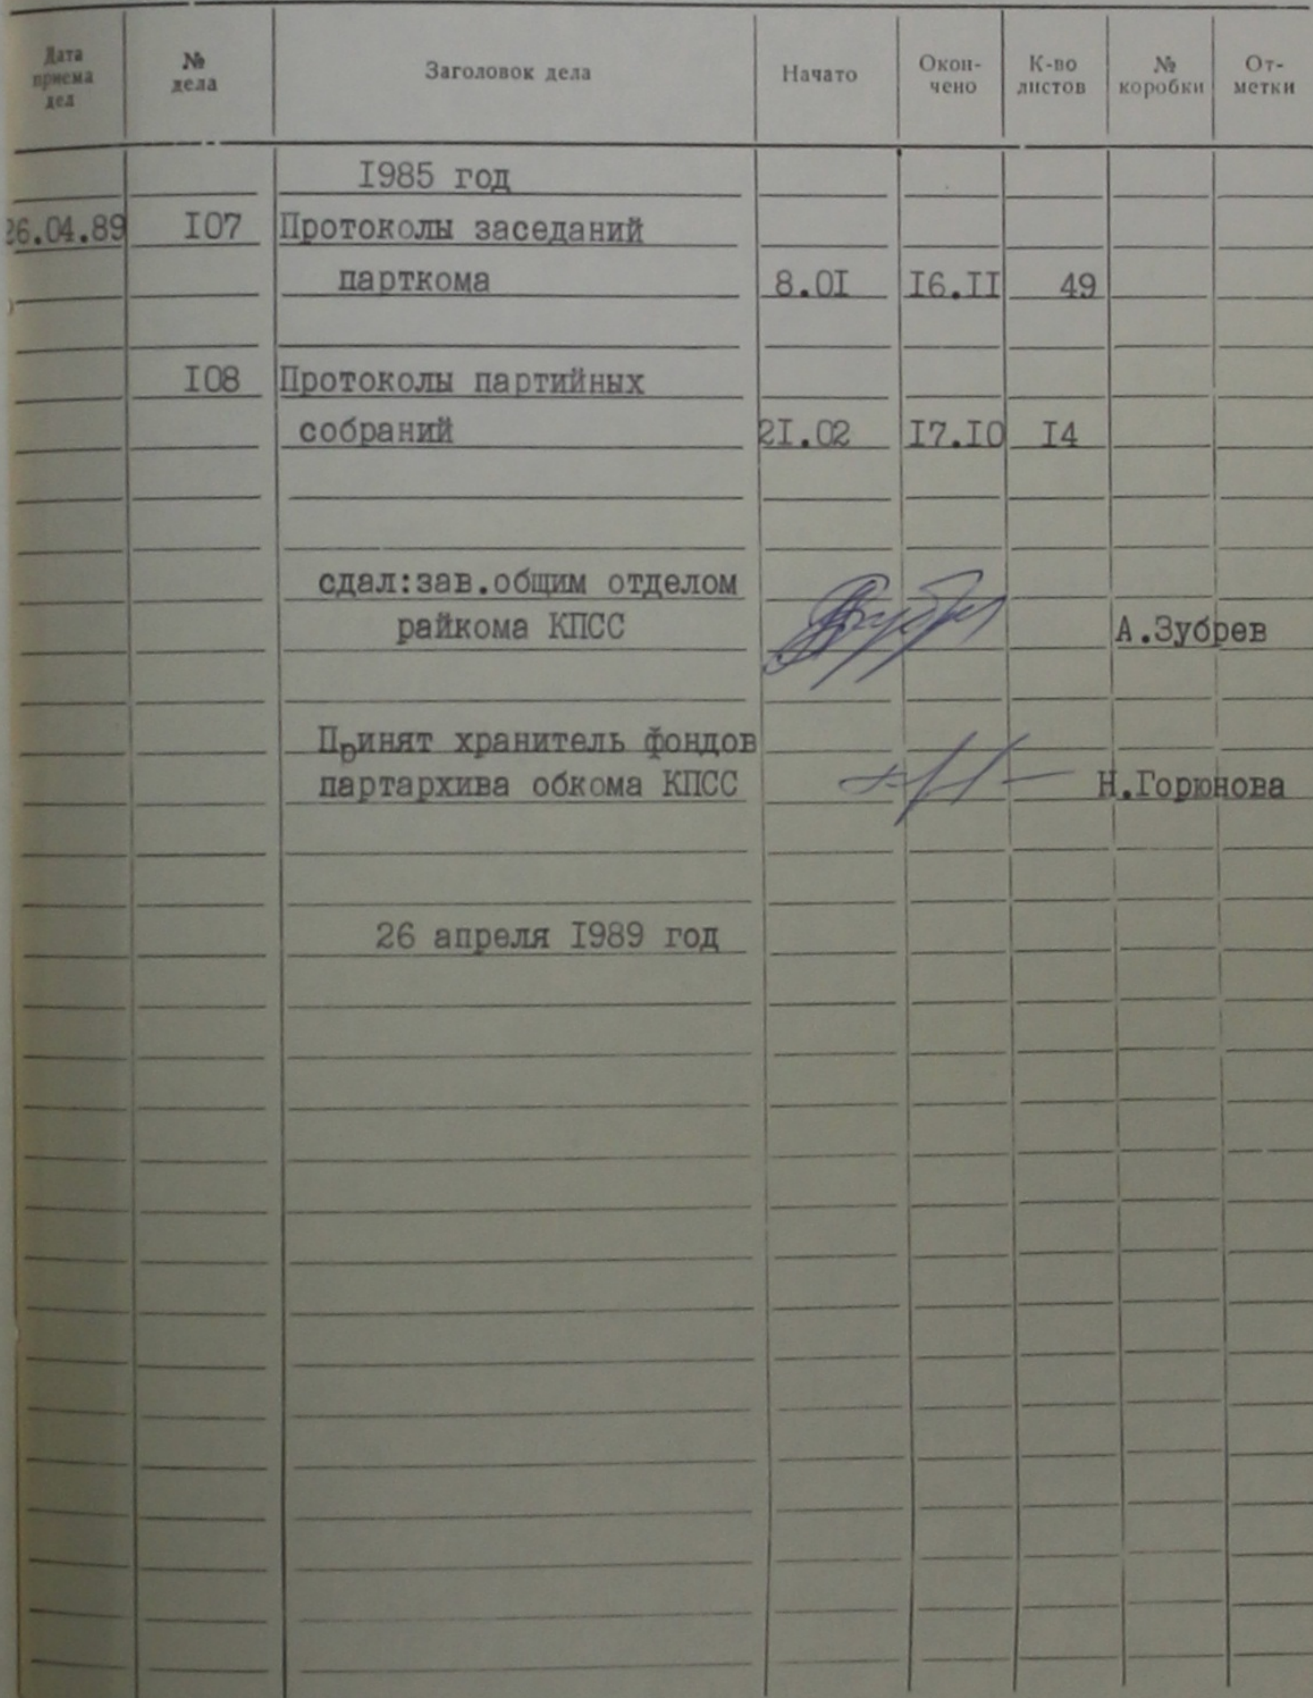 Дата приема дел № дела Заголовок дела Начато Окон- чено К-во листов № коробки От- метки
I985 год
26.04.89 I07 Протоколы заседаний
парткома 8.0I I6.II 49
I08 Протоколы партийных
собраний 2I.02 I7.I0 I4
сдал:зав.общим отделом
райкома КПСС А.Зубрев
Принят хранитель фондов
партархива обкома КПСС Н.Горюнова
26 апреля I989 год